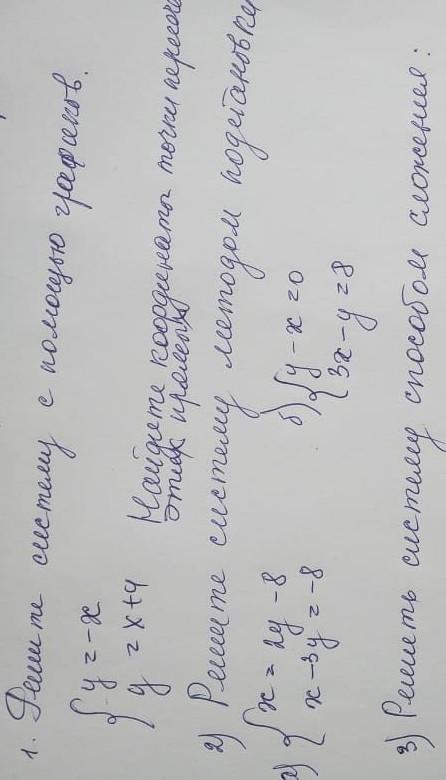 1. Решите систему с помощью графиков.
{ y = -x
y = x+4
Найдите координаты точки
этих прямых
2) Решите систему методом
а) { x = 2y - 8
x - 3y = -8
б) { y - x = 0
3x - y = 8
3) Решить систему способом сложения: